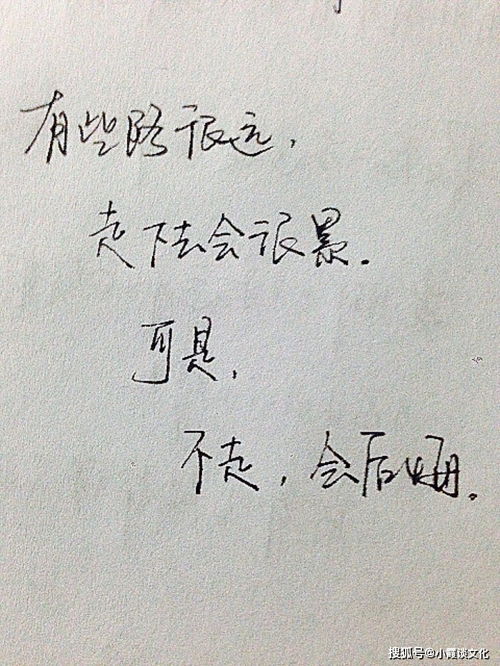 有些路很远，
走下去会很累.
可是，
不走，会后悔.
搜狐号@小霞谈文化